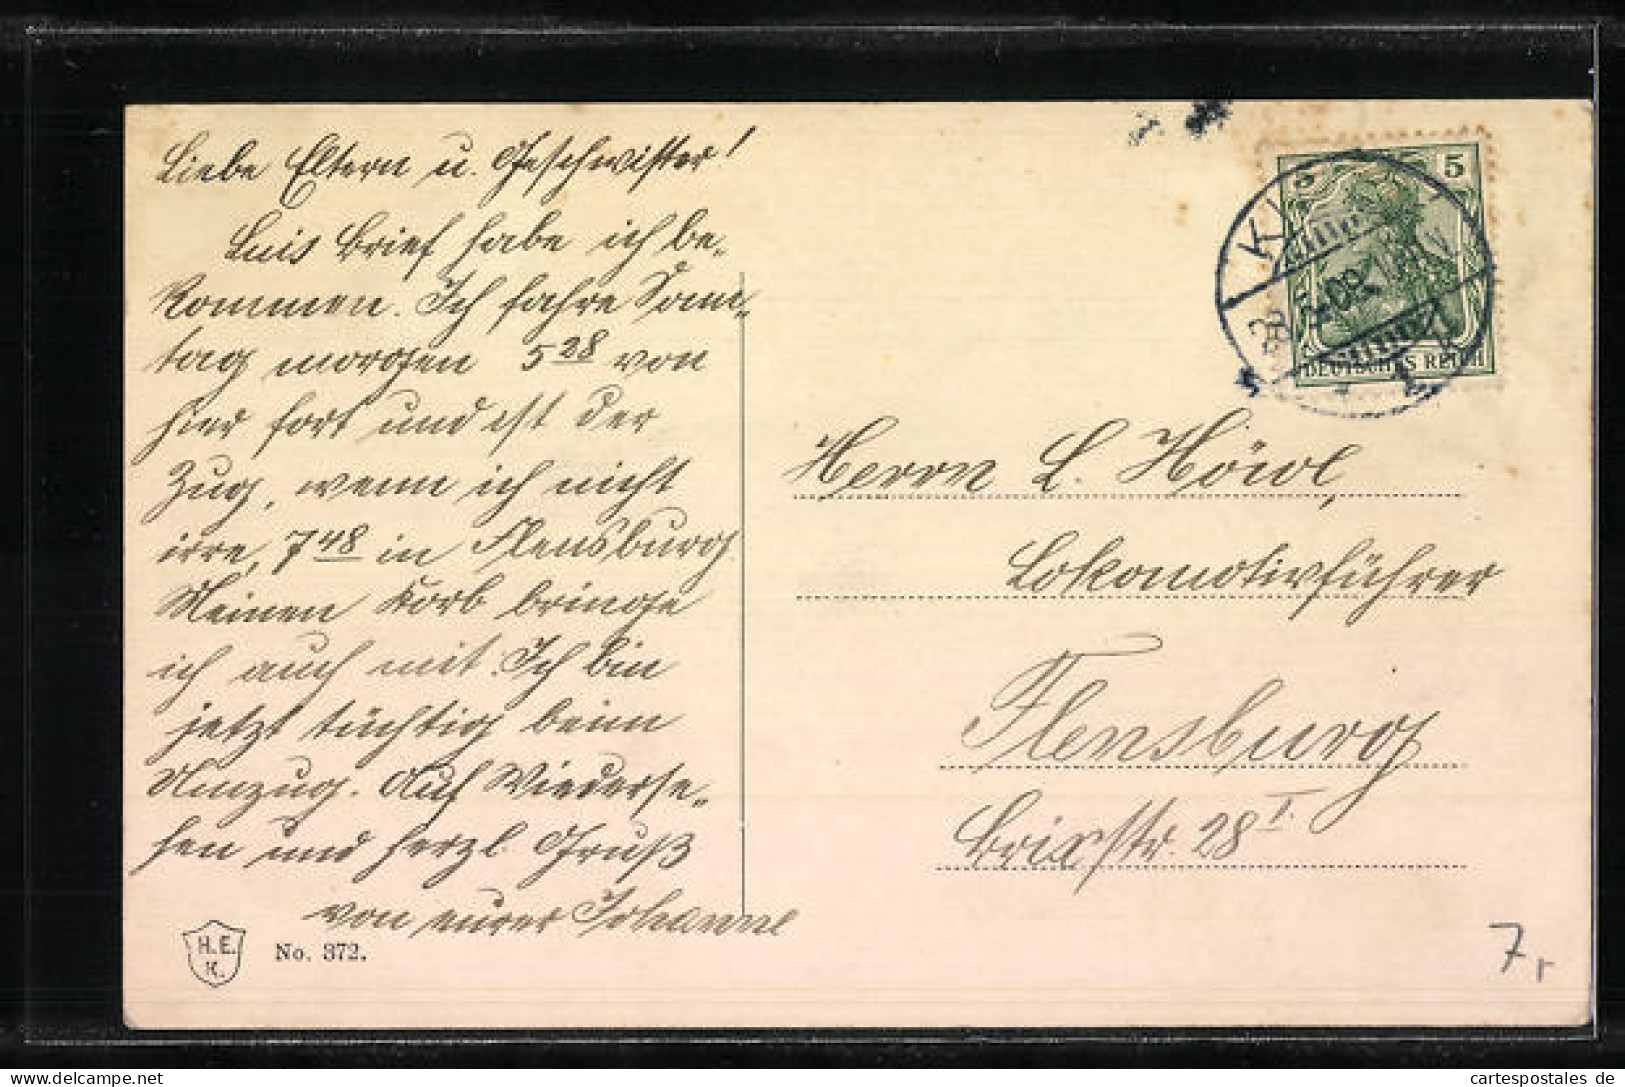 Liebe Eltern u. Geschwister!
Luis Brief habe ich be-
kommen. Ich fahre Sonn-
tag morgen 5 28 von
hier fort und ist der
Zug, wenn ich nicht
irre, 7 48 in Flensburg
Meinen Korb bringe
ich auch mit. Ich bin
jetzt tüchtig beim
Umzug. Auf Wiederse-
hen und herzl. Gruß
von eurer Johanne
H. E.
K.
No. 372.
5 5
DEUTSCHES REICH
Herrn L. Höwe,
Lokomotivführer
Flensburg
Brixstr. 28 I.
7,
cartespostales.de